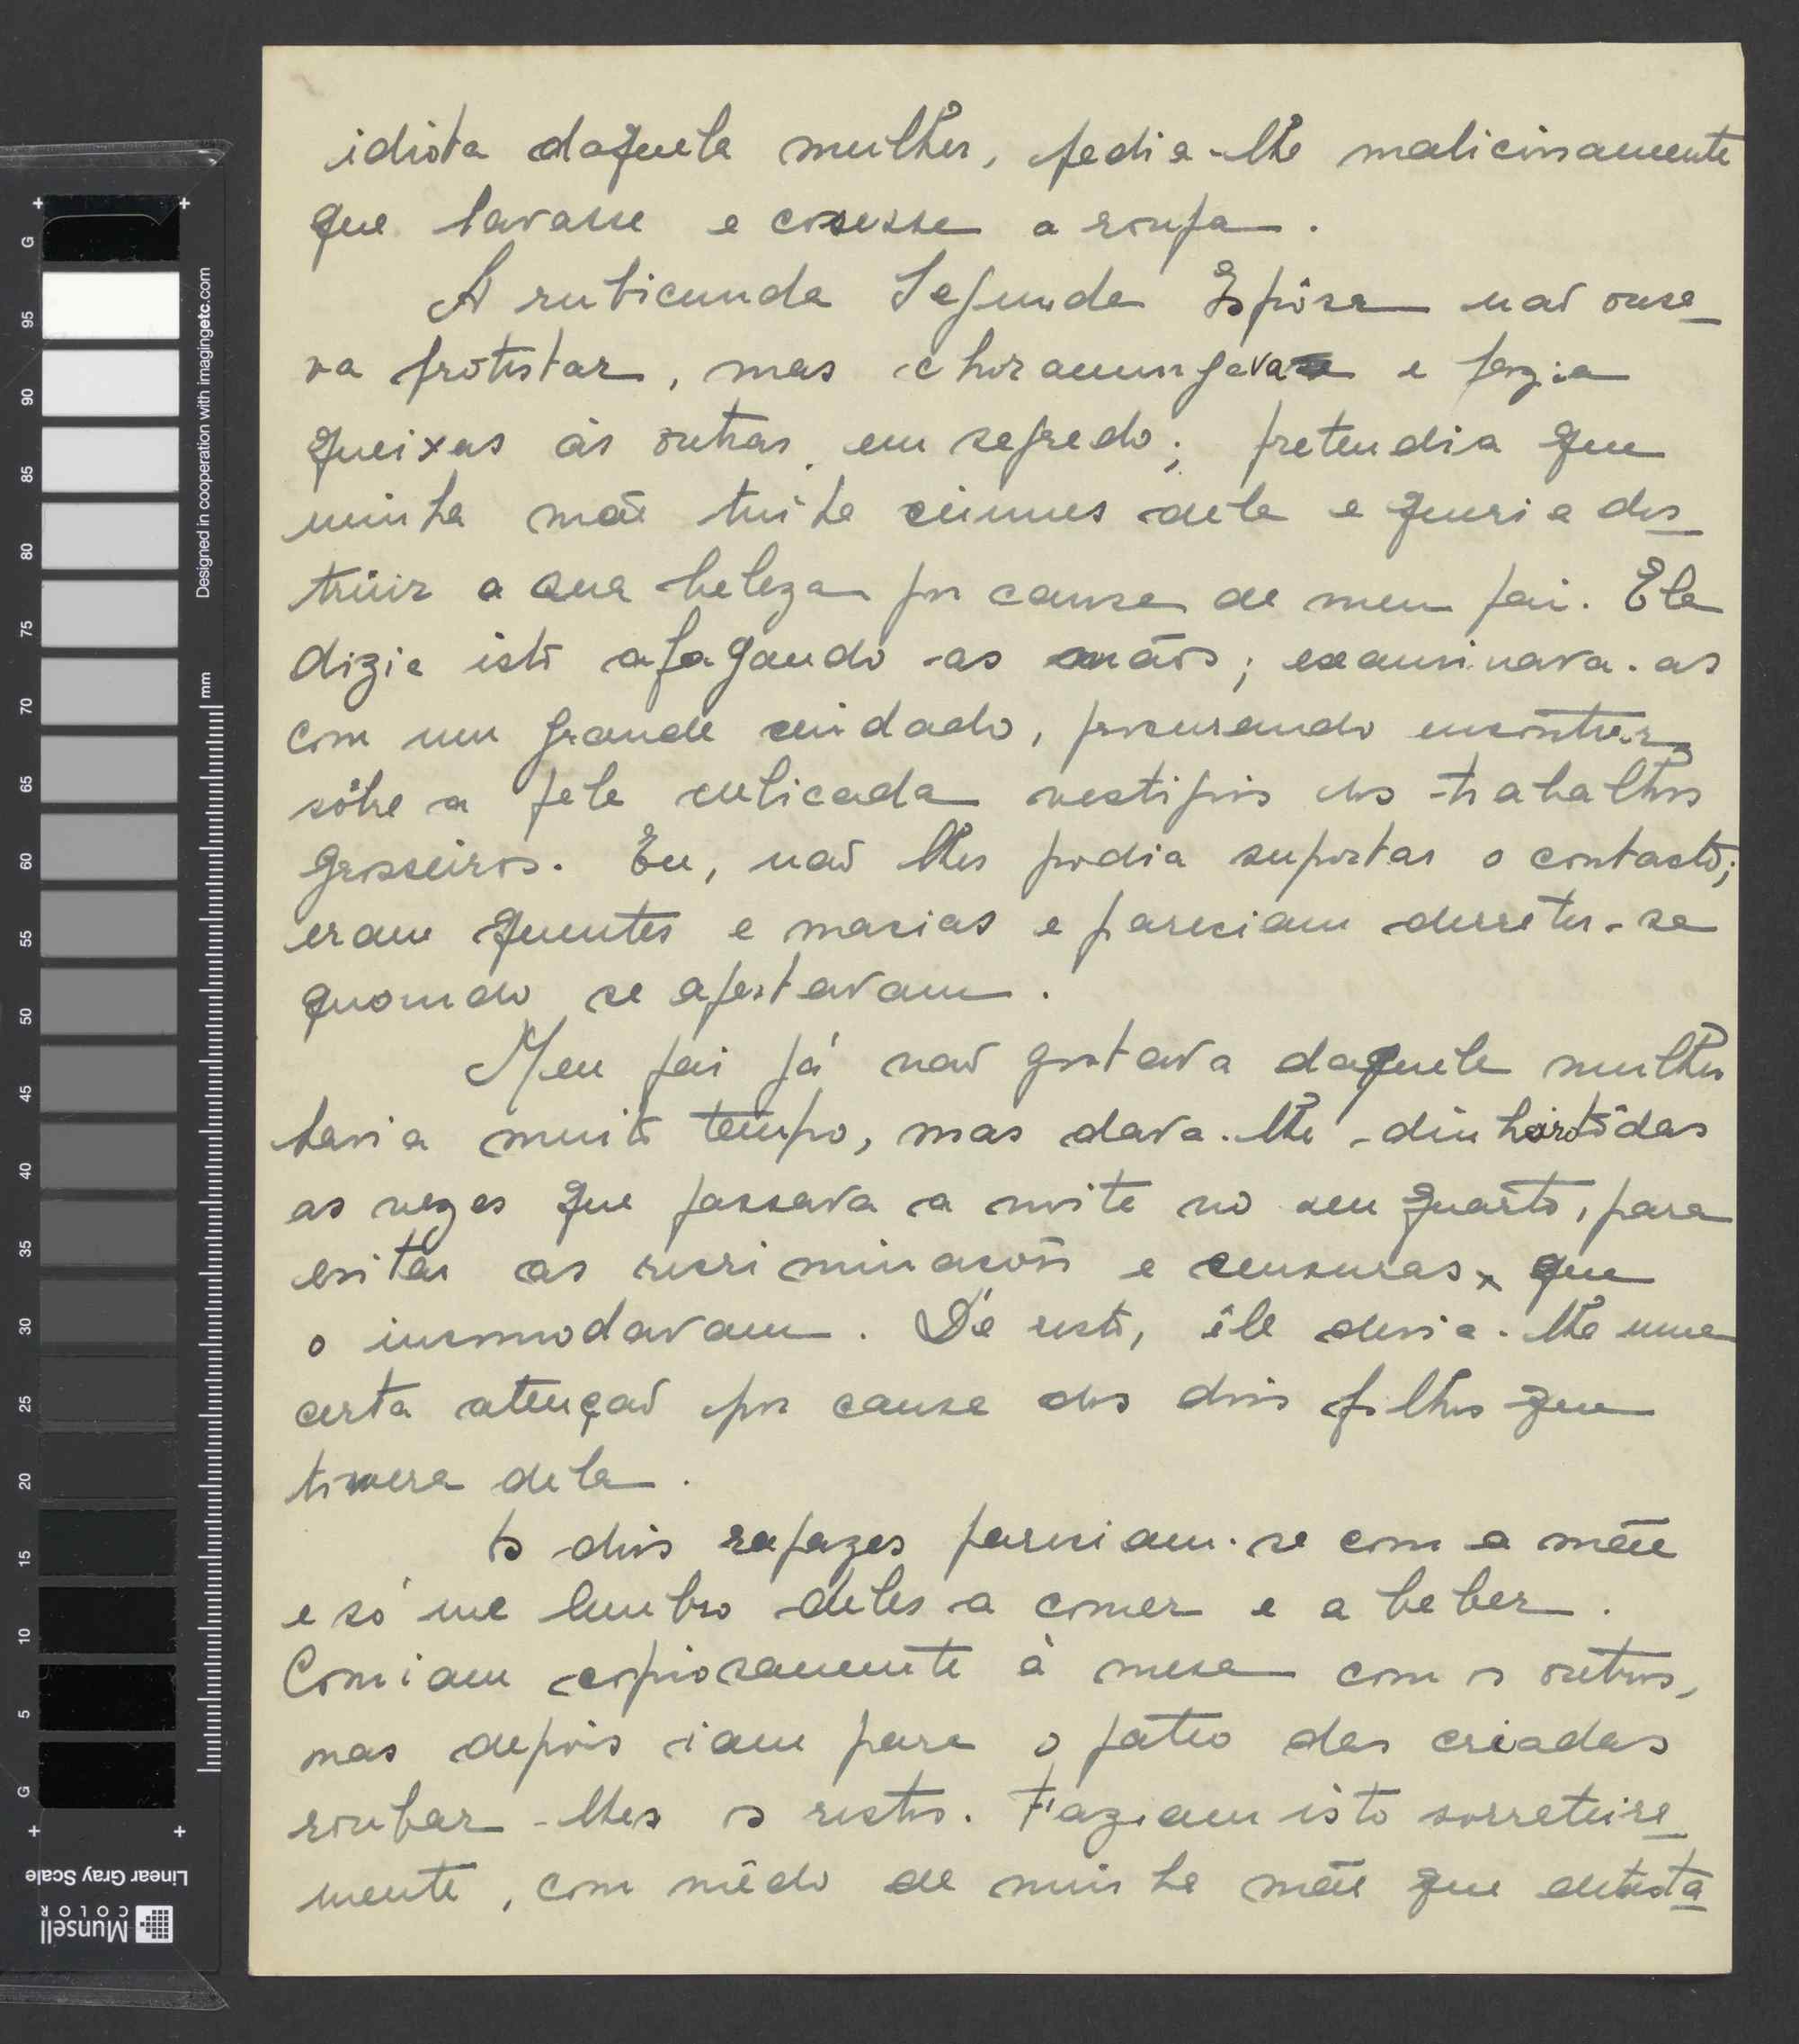 idiota daquela mulher, pedia-lhe maliciosamente
que lavasse e cosesse a roupa.
A rubicunda Segunda Espôsa não ousa-
va protestar, mas choramingava e fazia
queixas às outras, em segredo; pretendia que
minha mãe tinha ciumes dela e queria des-
truir a sua beleza por causa de meu pai. Ela
dizia isto afagando as mãos; examinava-as
com um grande cuidado, procurando encontrar,
sôbre a pele delicada vestigios dos trabalhos
grosseiros. Eu, não lhes podia suportar o contacto;
eram quentes e macias e pareciam derreter-se
quando se apertavam.
Meu pai já não gostava daquela mulher
havia muito tempo, mas dava-lhe dinheiro tôdas
as vezes que passava a noite no seu quarto, para
evitar as recriminacões e censuras que
o incomodavam. De resto, êle devia-lhe uma
certa atenção por causa dos dois filhos que
tivera dela.
Os dois rapazes pareciam-se com a mãe
e só me lembro deles a comer e a beber.
Comiam copiosamente à mesa com os outros,
mas depois iam para o pateo das criadas
roubar-lhes os restos. Faziam isto sorrateira-
mente, com mêdo de minha mãe que detesta-
Designed in cooperation with imagingetc.com
mm
Linear Gray Scale
Munsell
COLOR
G
95
90
85
80
75
70
65
60
55
50
45
40
35
30
25
20
15
10
5
G